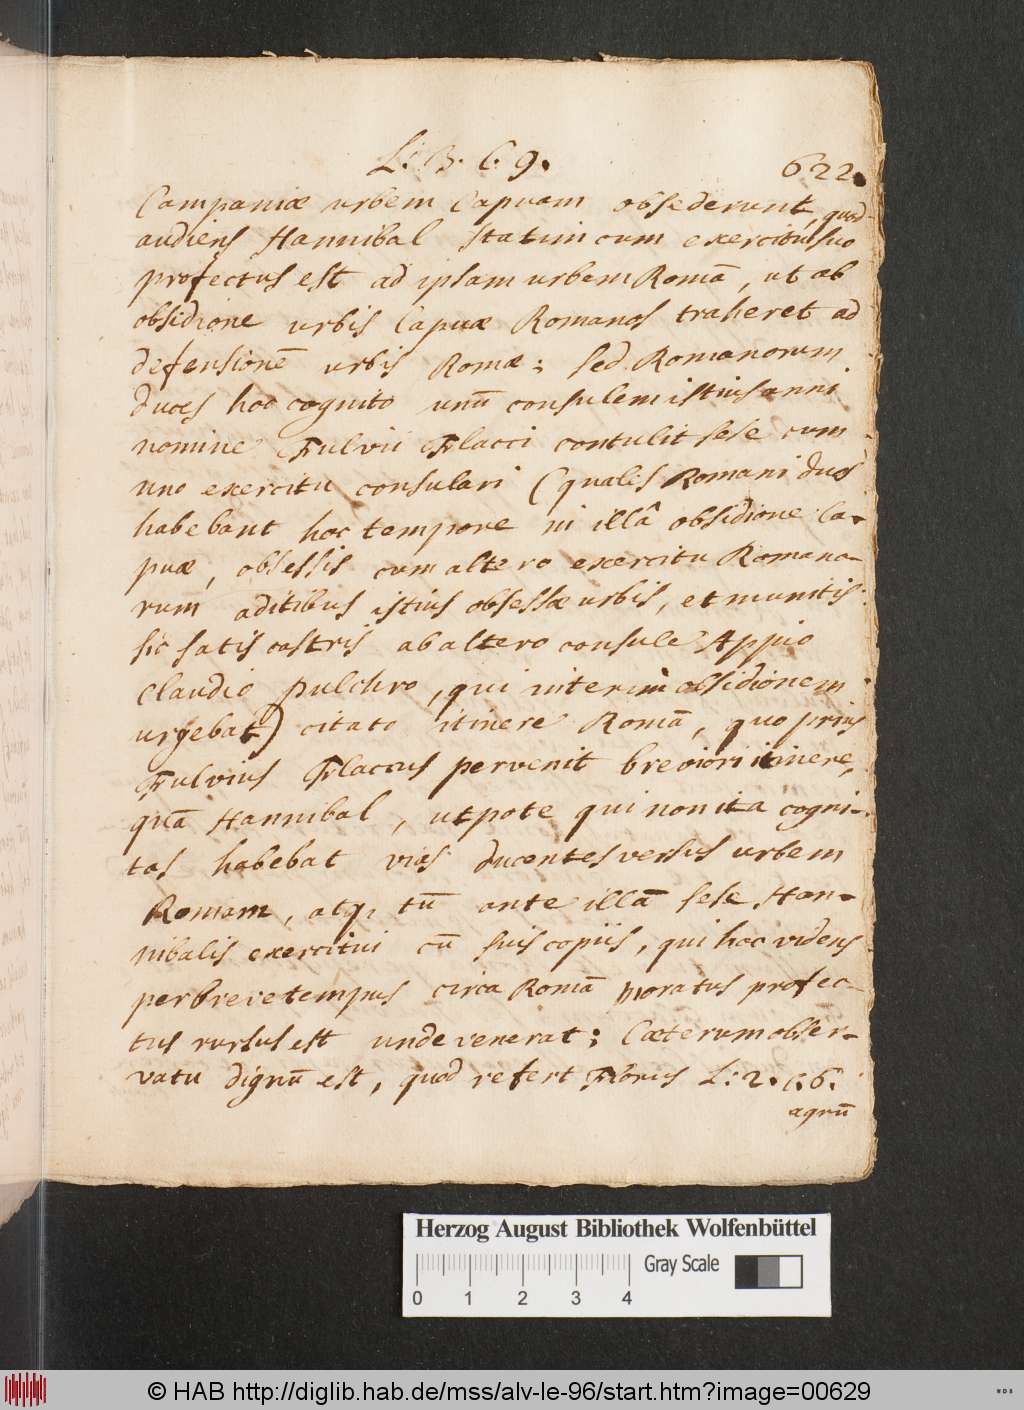 L: 3. C. 9. 622.
Campaniæ urbem Capuam obsederunt, quod
audiens Hannibal statim cum exercitu suo
profectus est ad ipsam urbem Romā, ut ab
obsidione urbis Capuæ Romanos traheret ad
defensionē urbis Romæ; sed Romanorum
duces hoc cognito unū consulem istius anni
nomine Fulvii Flacci contulit sese cum
uno exercitu consulari (quales Romani duos
habebant hoc tempore in illâ obsidione Ca-
puæ, obsessis cum altero exercitu Romano-
rum aditibus istius obsessæ urbis, et munitis
sic satis castris ab altero consule Appio
Claudio Pulchro, qui interim obsidionem
urgebat) citato itinere Romā, quo prius
Fulvius Flaccus pervenit breviori itinere,
quā Hannibal, utpote qui non ita cogni-
tas habebat vias ducentes versus urbem
Romam, atq, tū ante illā sese Han-
nibalis exercitui cū suis copiis, qui hoc videns
perbreve tempus circa Romā moratus profec-
tus rursus est unde venerat; Cæterum obser-
vatu dignū est, quod refert Florus L: 2. c. 6.
agrū
Herzog August Bibliothek Wolfenbüttel
Gray Scale
0 1 2 3 4
© HAB http://diglib.hab.de/mss/alv-le-96/start.htm?image=00629